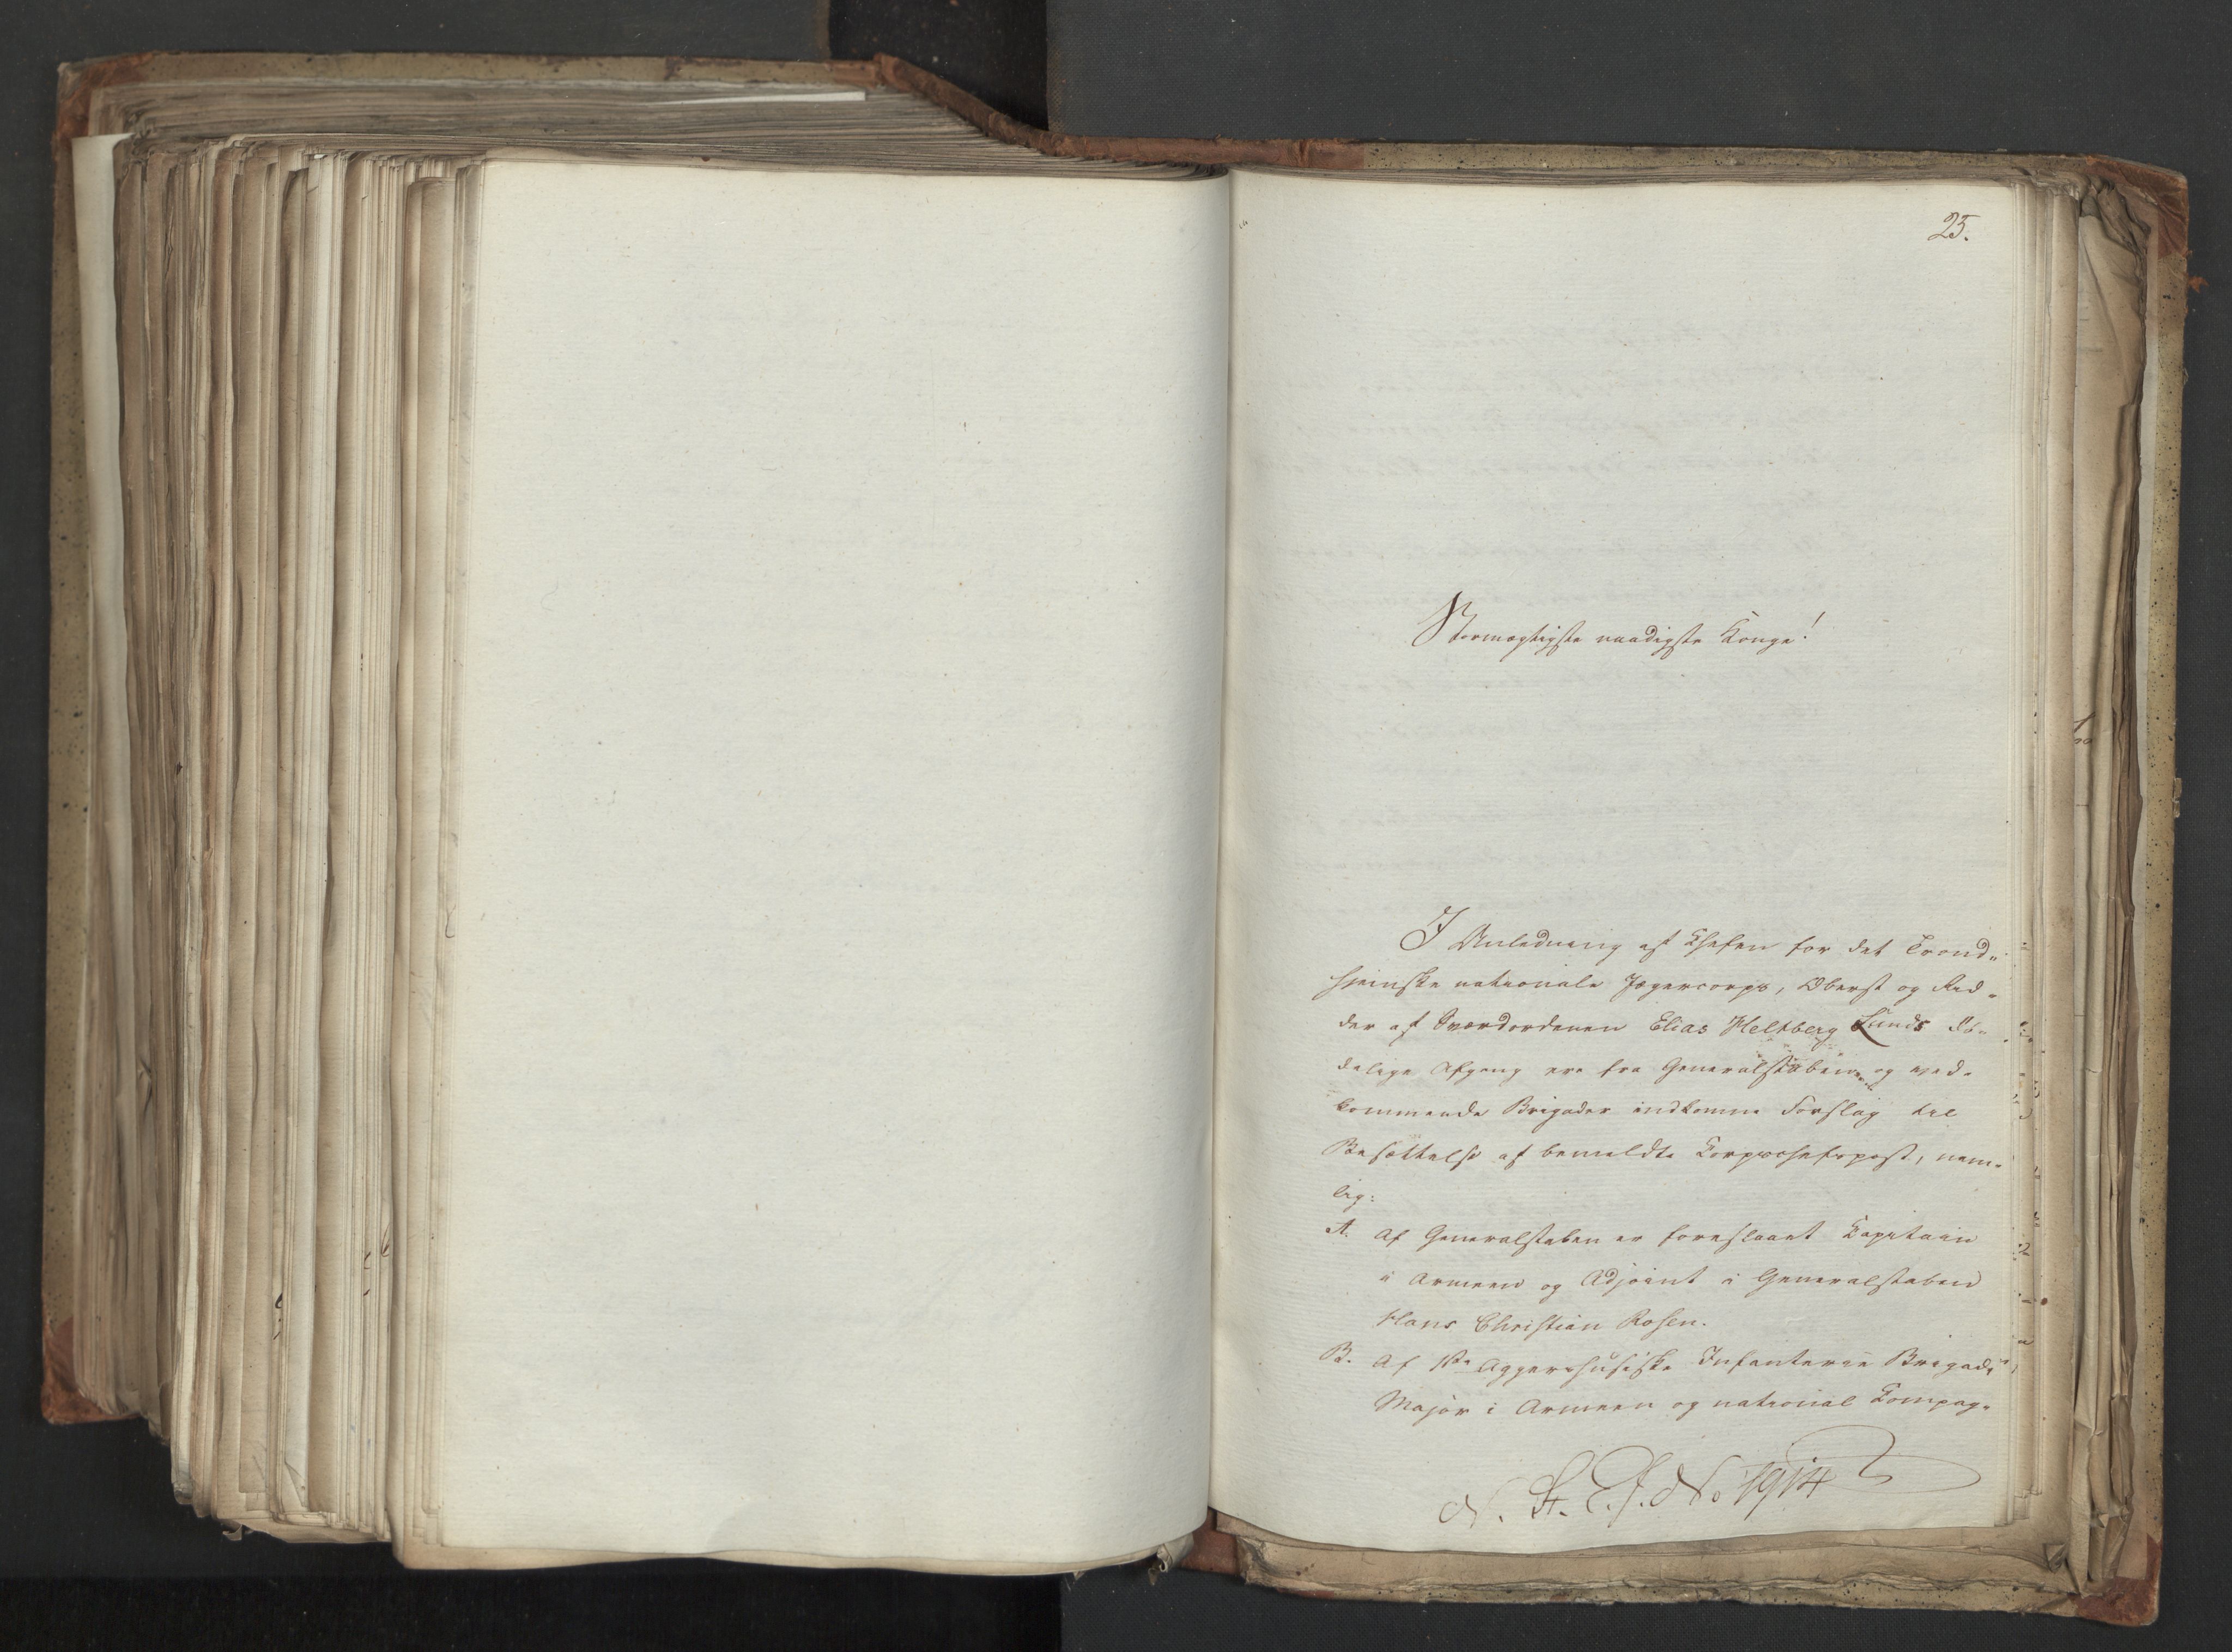 25.
Stormægtigste naadigste Konge!
I Anledning af Chefen for det Trond-
hjemske nationale Jægercorps, Oberst og Rid-
der af Sværdordenen Elias Heltberg Lunds dö-
delige Afgang ere fra Generalstaben og ved-
kommende Brigader indkomne Forslag til
Besættelse af bemeldte Corpschefspost, nem-
lig:
A. Af Generalstaben er foreslaaet Capitain
i Armeen og Adjoint i Generalstaben
Hans Christian Rosen.
B. Af 1ste Aggershusiske Infanterie Brigade,
Major i Armeen og national Compag-
N. St. E. J. No 1914